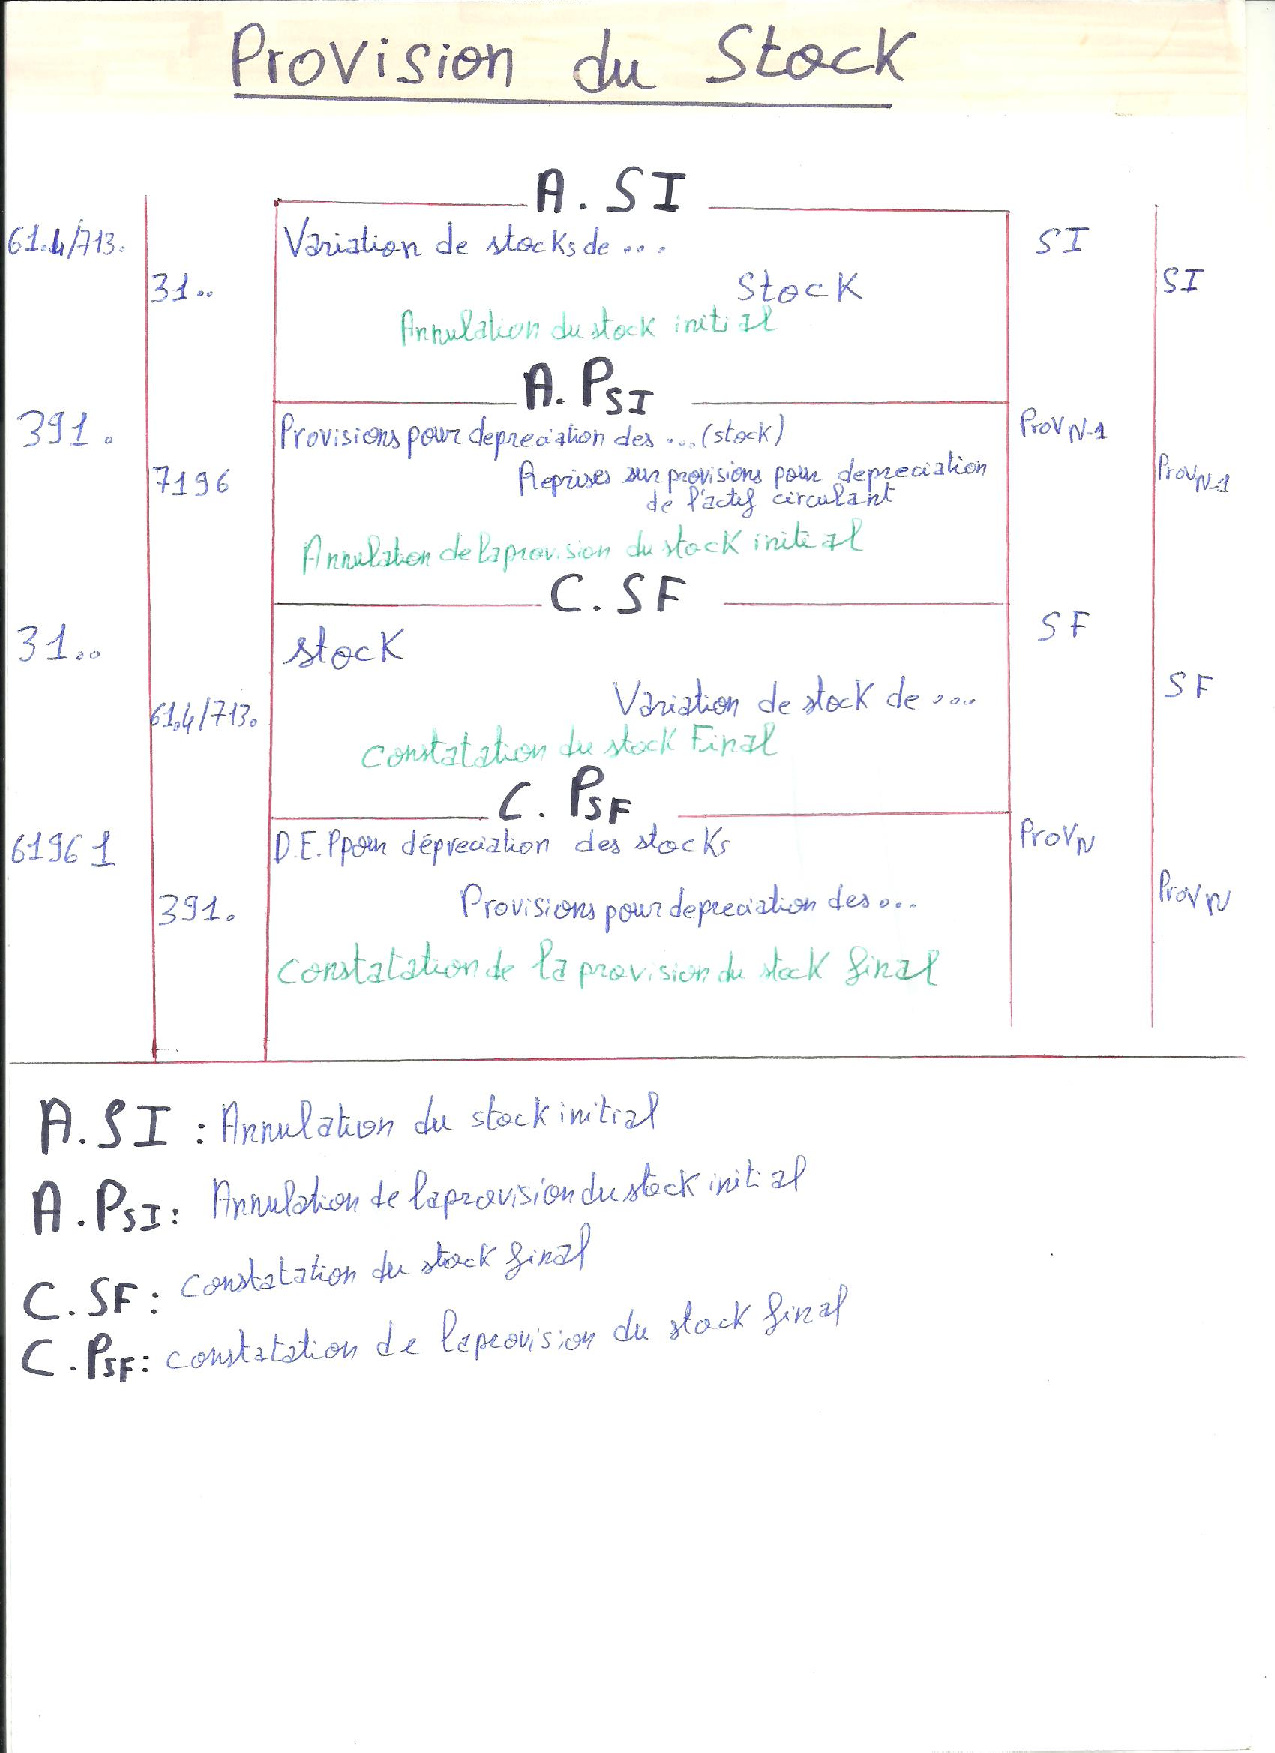 Provision du Stock
A. SI
61.4/713. Variation de stocks de ... SI
31.. Stock SI
Annulation du stock initial
A. PSI
391. Provisions pour depreciation des ... (stock) ProvN-1
7196 Reprises sur provisions pour depreciation ProvN-1
de l'actif circulant
Annulation de la provision du stock initial
C. SF
31.. stock SF
61.4/713. Variation de stock de .... SF
Constatation du stock Final
C. PSF
61961 D.E.P pour dépreciation des stocks ProvN
391. Provisions pour depreciation des ... ProvN
Constatation de la provision du stock final
A. SI : Annulation du stock initial
A. PSI : Annulation de la provision du stock initial
C. SF : Constatation du stock final
C. PSF : constatation de la provision du stock final